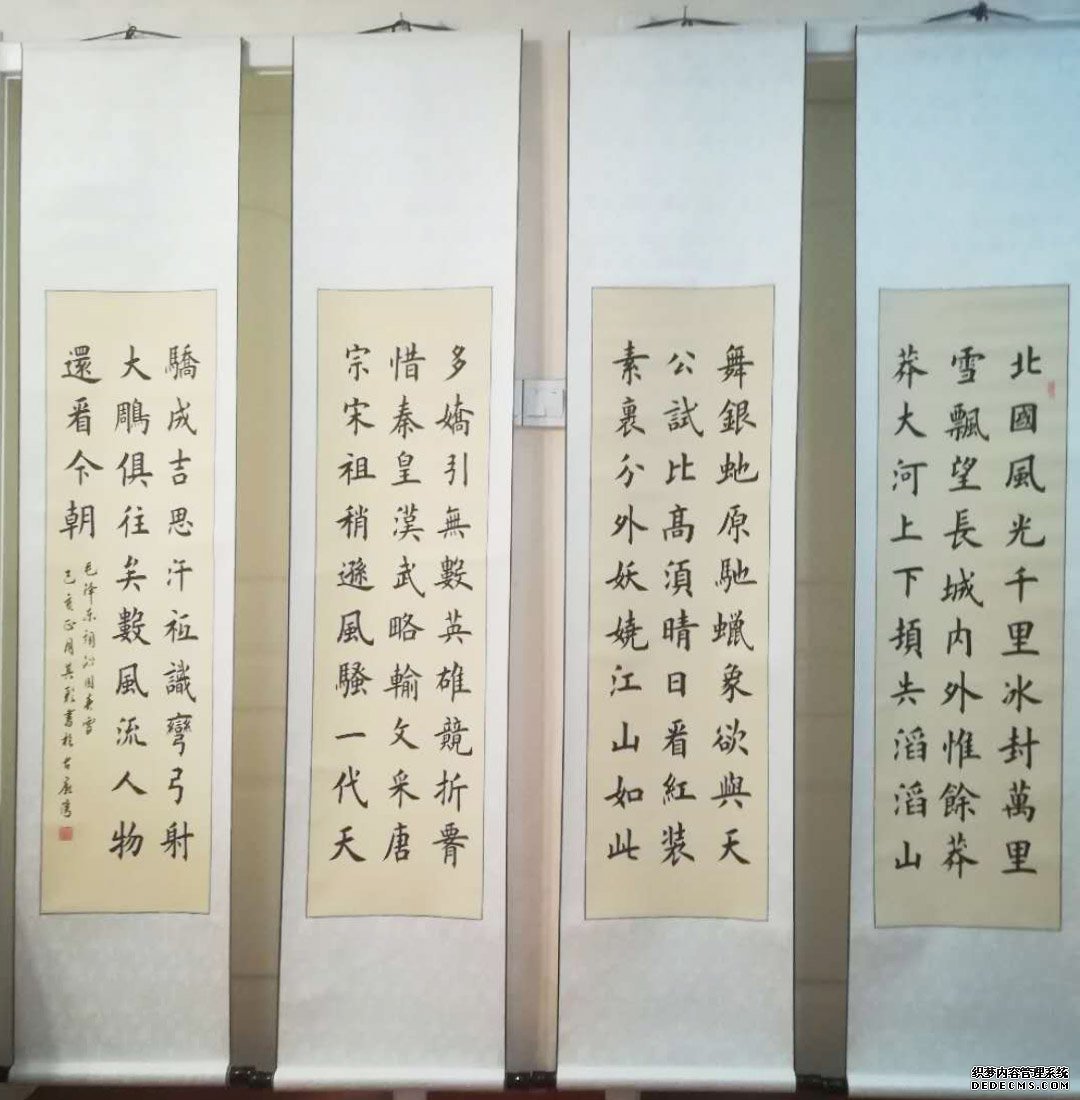 北國風光千里冰封萬里
雪飄望長城内外惟餘莽
莽大河上下頓失滔滔山
舞銀虵原馳蠟象欲與天
公試比高須晴日看紅裝
素裹分外妖嬈江山如此
多嬌引無數英雄競折腰
惜秦皇漢武略輸文采唐
宗宋祖稍遜風騷一代天
驕成吉思汗衹識彎弓射
大雕俱往矣數風流人物
還看今朝
毛泽东词沁园春雪
己亥正月書於
织梦内容管理系统
DEDECMS.COM